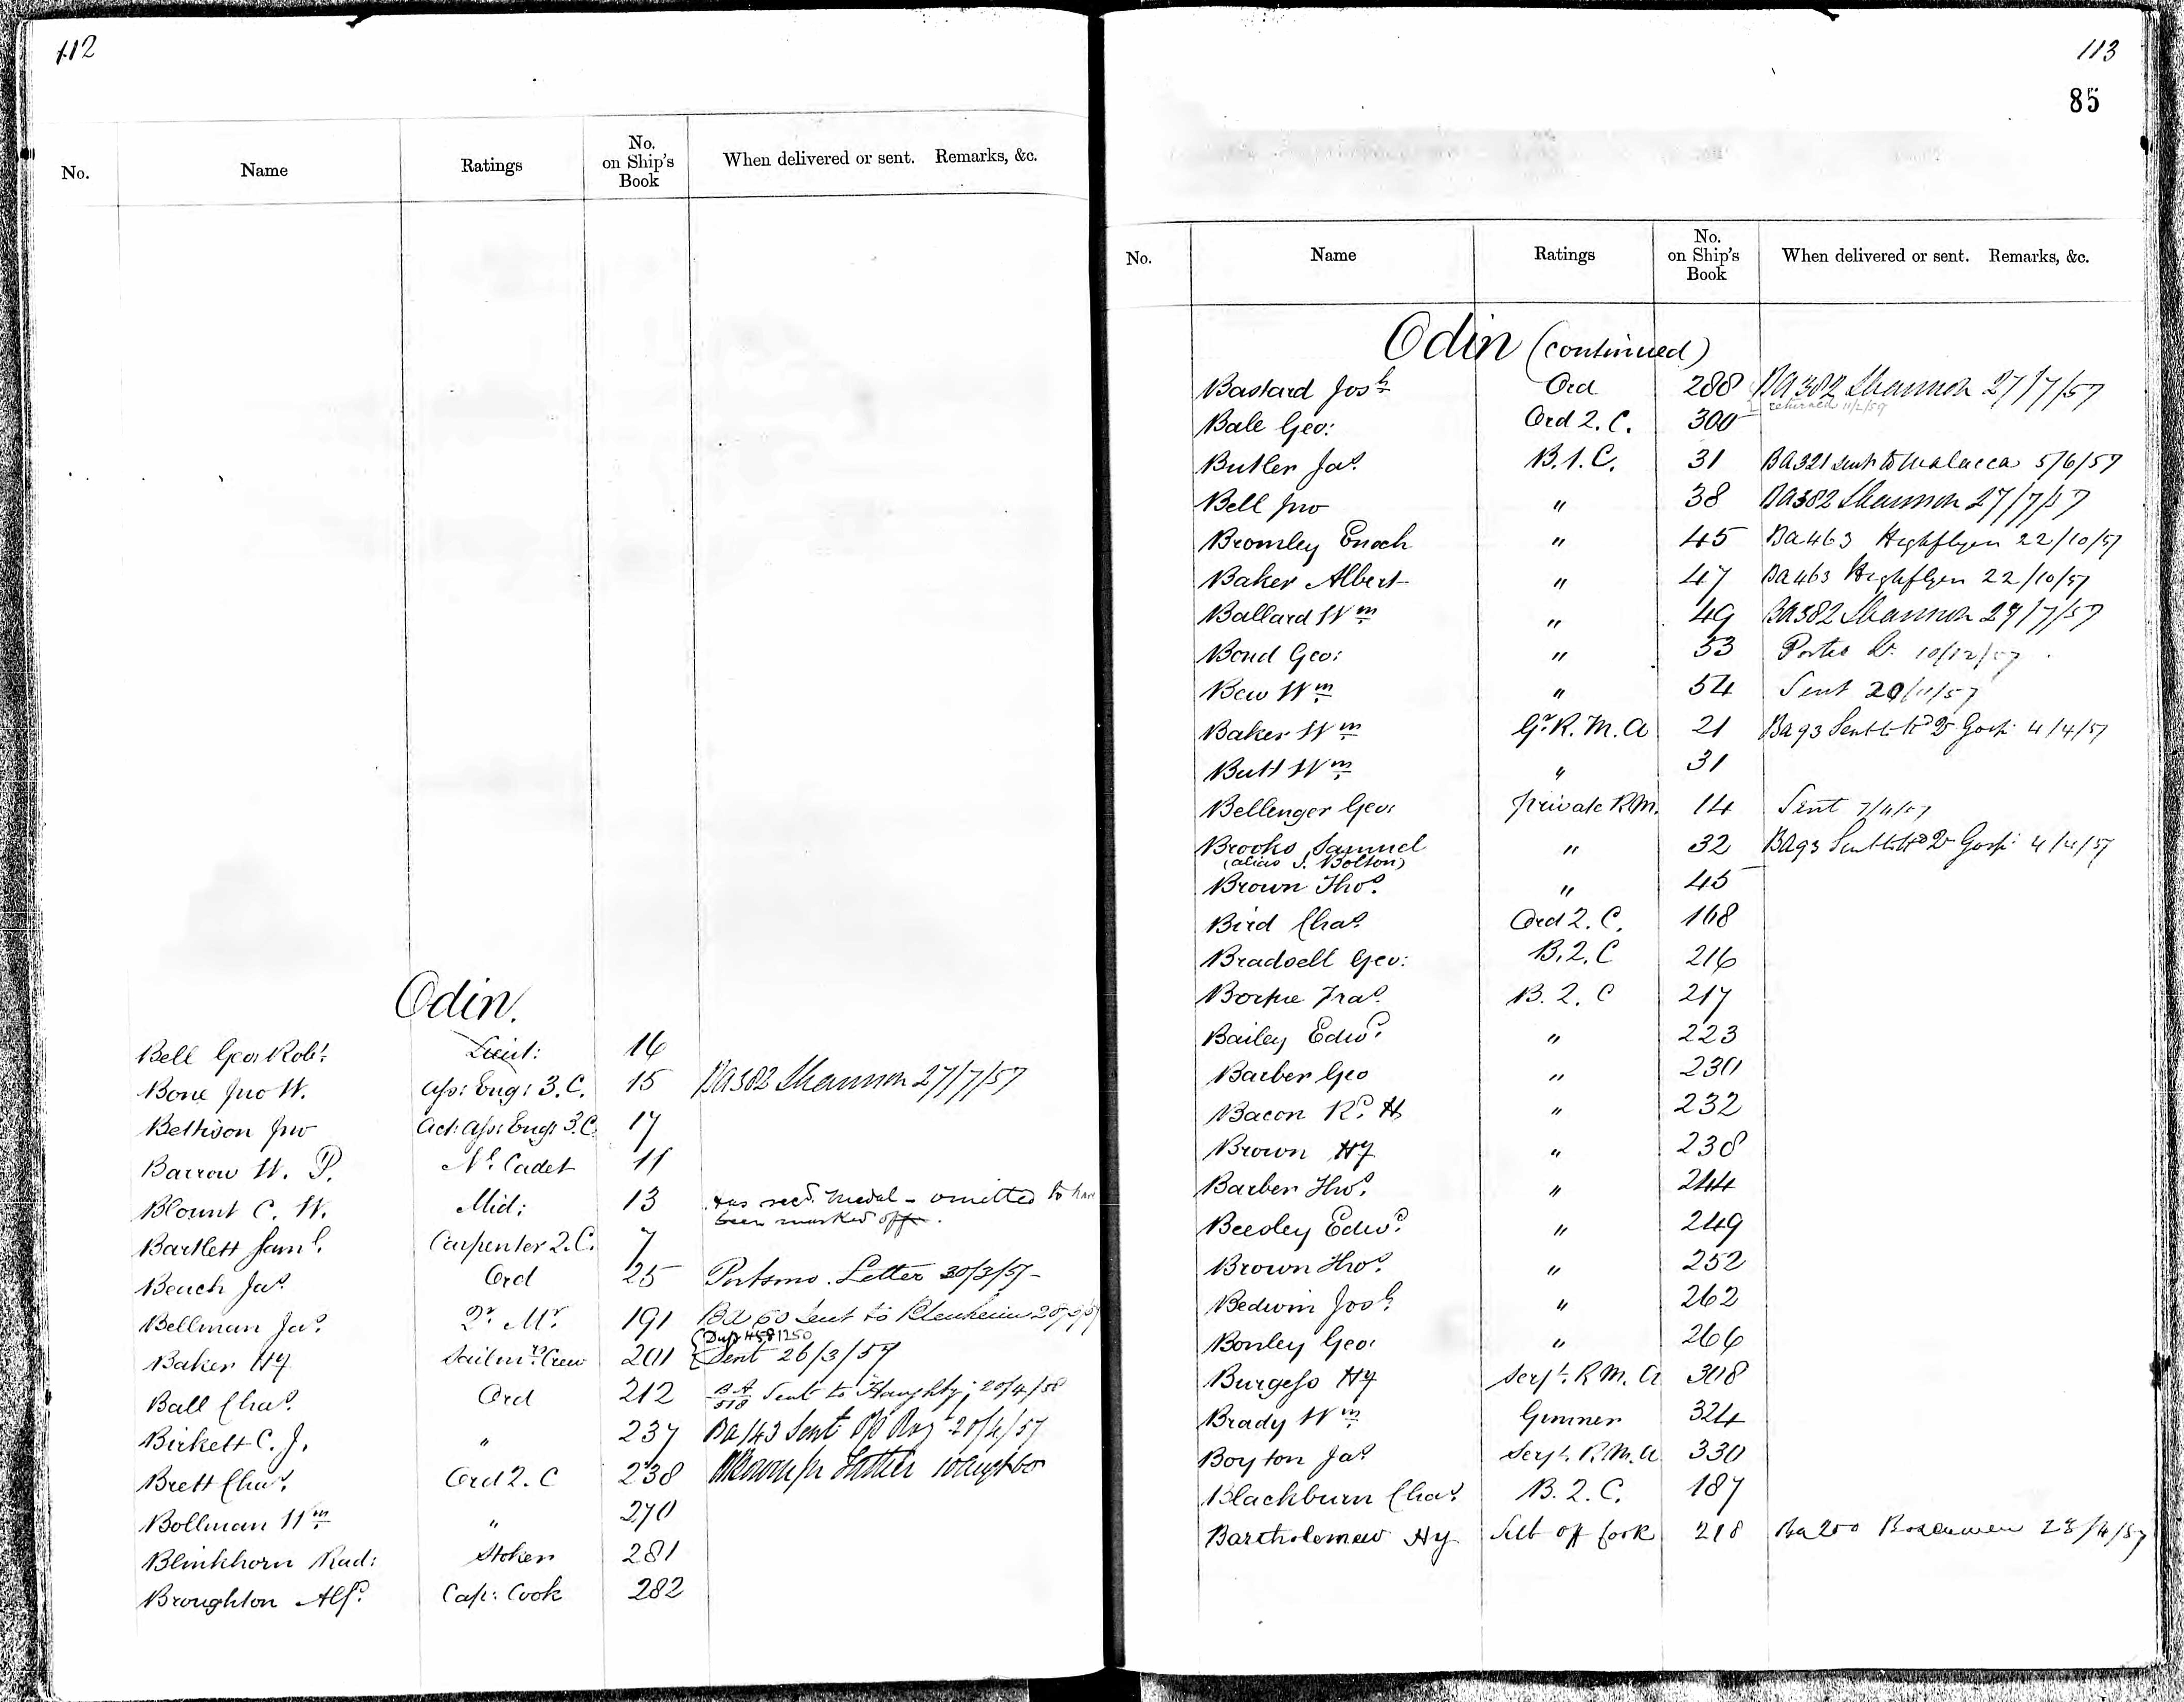 112
No. Name Ratings No. on Ship's Book When delivered or sent. Remarks, &c.
Odin.
Bell Geo: Robt. Lieut: 16
Bone Jno W. Ass: Eng: 3.C. 15 BA382 Shannon 27/7/57
Bettison Jno Act: Ass: Eng: 3.C. 17
Barrow W. P. Nl. Cadet 11
Blount C. W. Mid: 13 Has recd. medal - omitted to have
been marked off.
Bartlett Saml. Carpenter 2.C. 7
Beach Jas. Ord 25 Portsmo. Letter 30/3/57
Bellman Jas. 2r. Mr. 191 BA 60 Sent to Blenheim
Baker Hy Sailmrs. Crew 201 Sent 26/3/57
Ball Chas. Ord 212 BA 518 Sent to Haughty; 20/4/58
Birkett C. J. " 237 BA143 Sent
Brett Chas. Ord 2.C 238
Bollman Wm. " 270
Blinkhorn Rud: Stoker 281
Broughton Alfd. Cap: Cook 282
113
85
No. Name Ratings No. on Ship's Book When delivered or sent. Remarks, &c.
Odin (continued)
Bastard Josh. Ord 288 BA382 Shannon 27/7/57
returned 11/2/59
Bale Geo: Ord 2.C. 300
Butler Jas. B.1.C. 31 BA321 sent to Malacca 5/6/57
Bell Jno " 38 BA382 Shannon 27/7/57
Bromley Enoch " 45 Ba463 Highflyer 22/10/57
Baker Albert " 47 Ba463 Highflyer 22/10/57
Ballard Wm. " 49 BA382 Shannon 27/7/57
Bond Geo: " 53 10/12/57
Bew Wm. " 54 Sent 20/11/57
Baker Wm. Gr. R.M.A 21 Ba93 Sent 4/4/57
Butt Wm. " 31
Bellenger Geo: private R.M. 14 Sent 7/4/57
Brooks Samuel " 32 BA93 4/4/57
(alias S. Bolton)
Brown Thos. " 45
Bird Chas. Ord 2.C. 168
Bradsell Geo: B.2.C 216
Borkie Fras. B.2.C 217
Bailey Edwd. " 223
Barber Geo " 230
Bacon Rd. H " 232
Brown Hy " 238
Barber Thos. " 244
Beesley Edwd. " 249
Brown Thos. " 252
Bedwin Josh. " 262
Bonley Geo: " 266
Burgess Hy Serjt. R.M.A 308
Brady Wm. Gunner 324
Boyton Jas. Serjt. R.M.A 330
Blackburn Chas. B.2.C. 187
Bartholomew Hy Sub off Cook 218 Ba200 Boscawen 28/4/57